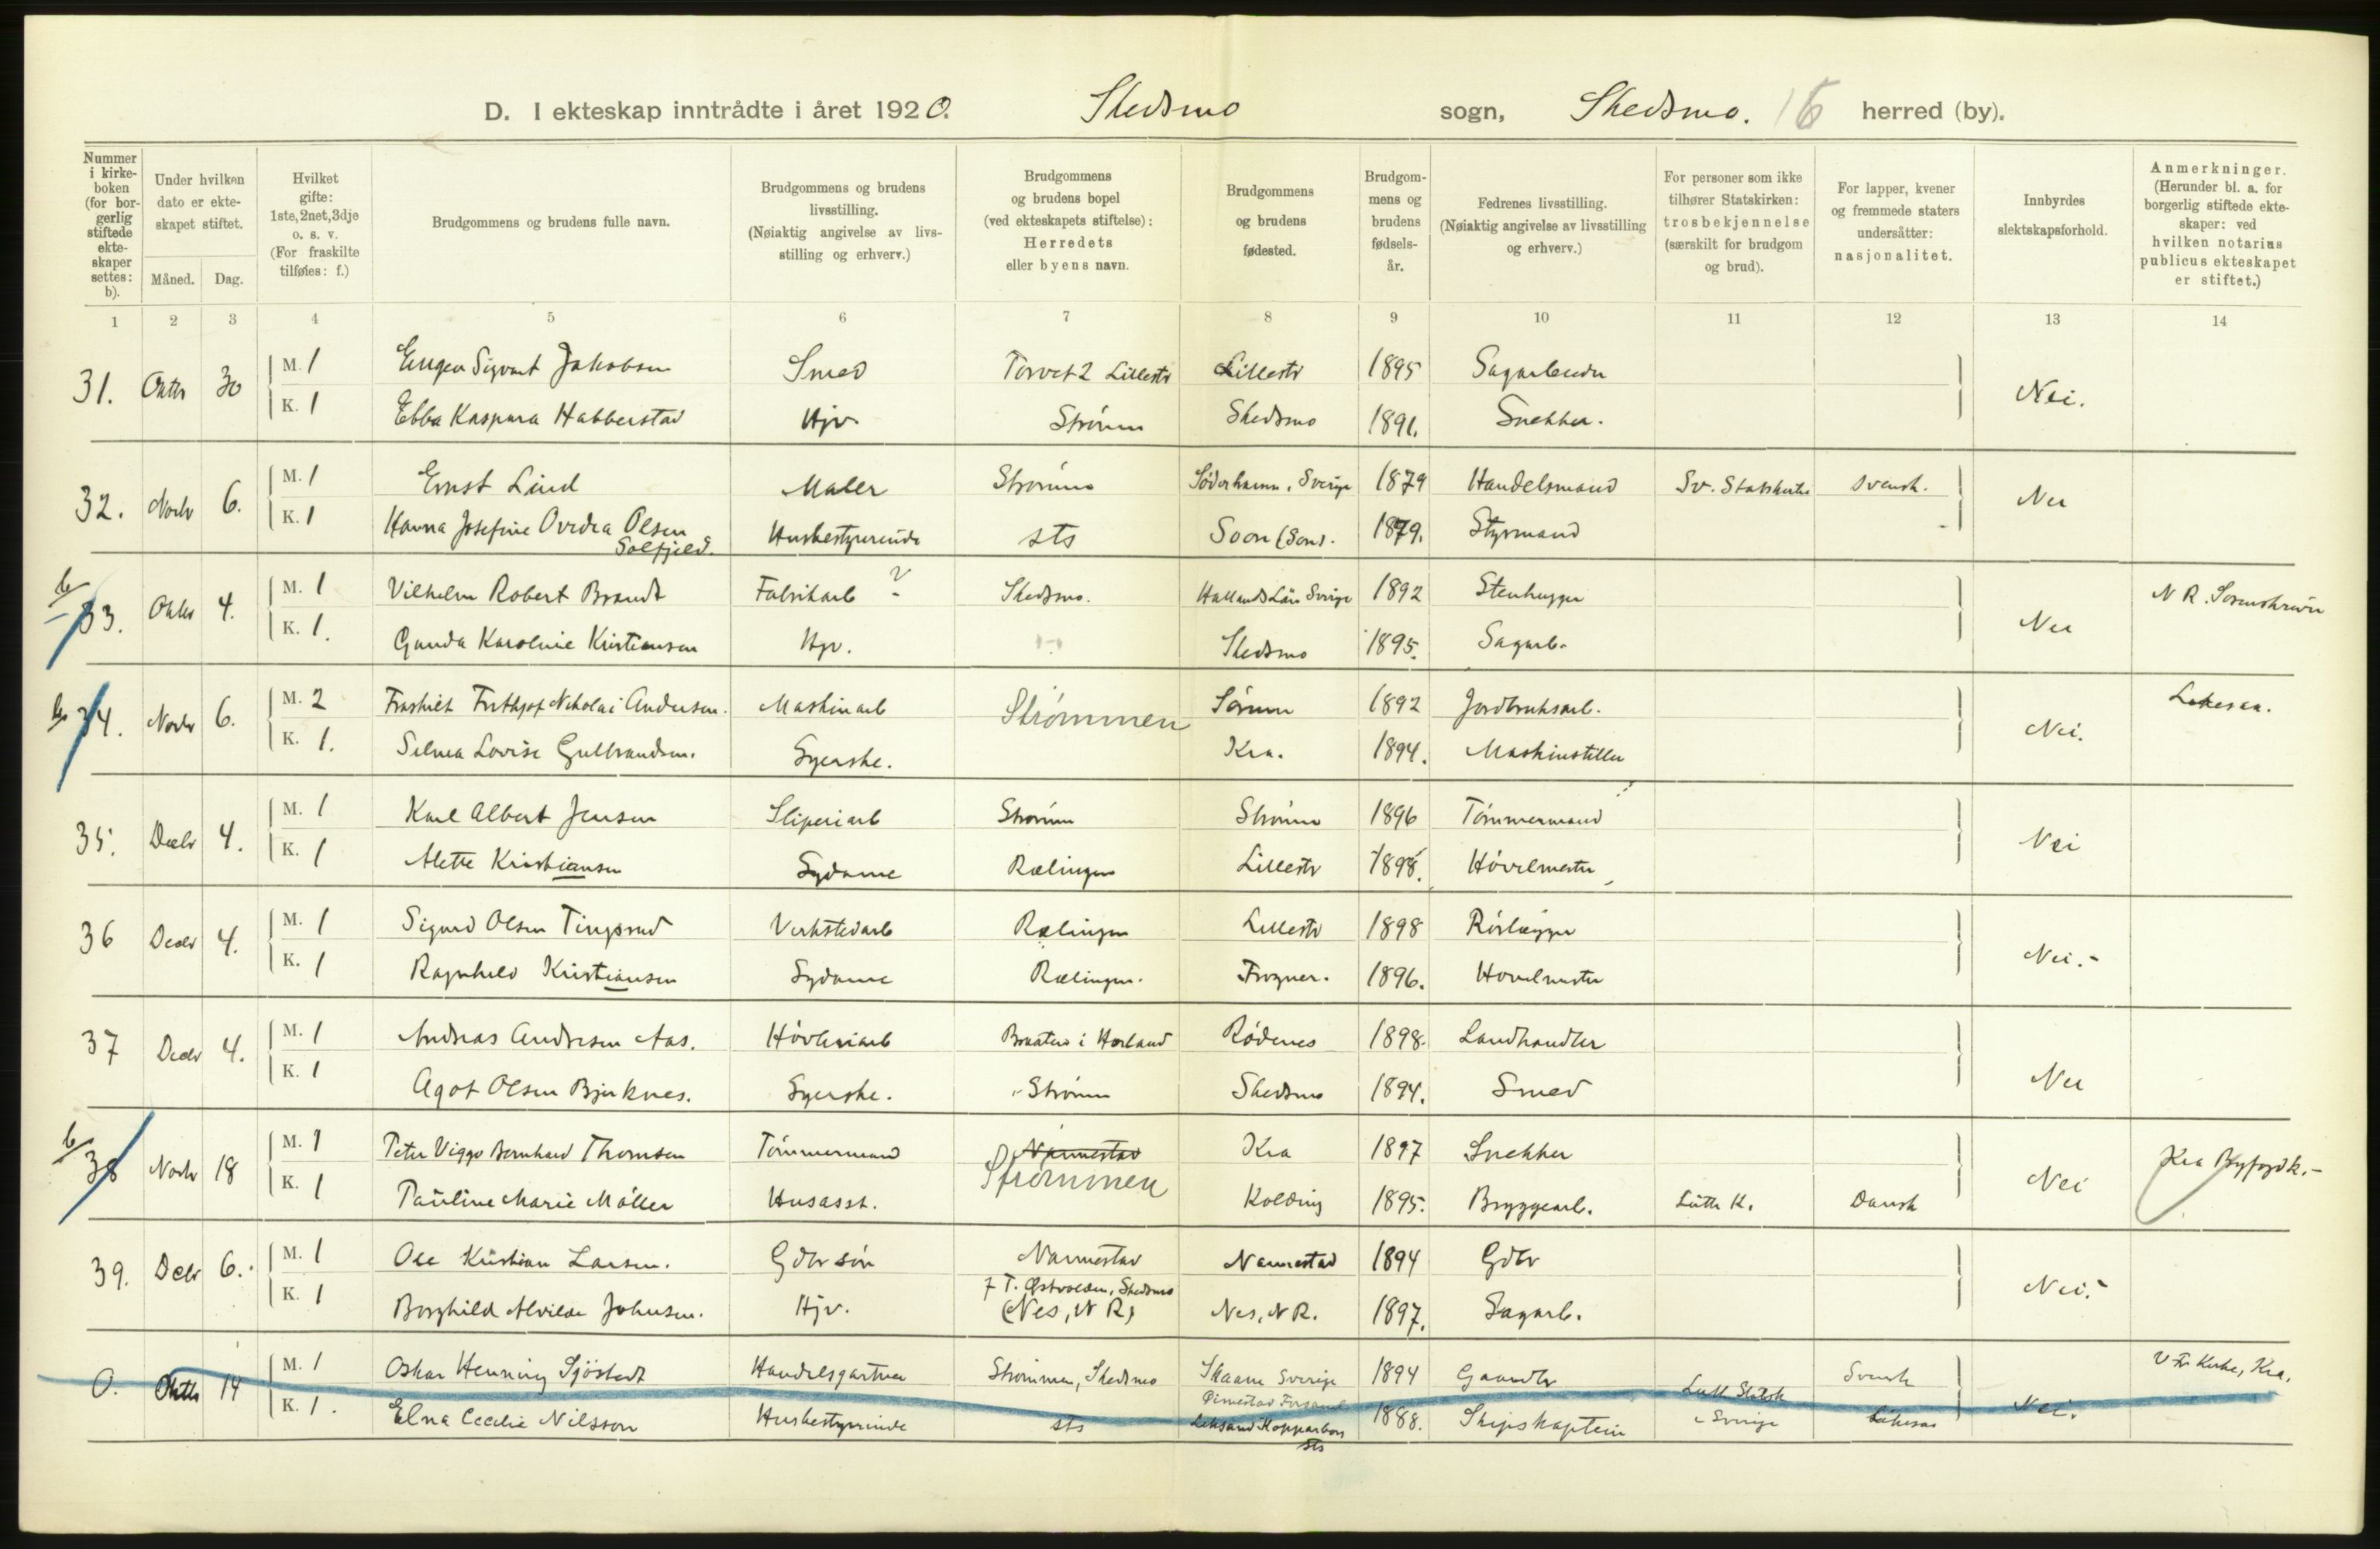 D. I ekteskap inntrådte i året 1920. Skedsmo sogn, Skedsmo. 16 herred (by).
Nummer i kirke-boken (for bor-gerlig stiftede ekte-skaper settes: b).
Under hvilken dato er ekte-skapet stiftet.
Måned. Dag.
Hvilket gifte: 1ste, 2net, 3dje o. s. v. (For fraskilte tilføies: f.)
Brudgommens og brudens fulle navn.
Brudgommens og brudens livsstilling. (Nøiaktig angivelse av livs-stilling og erhverv.)
Brudgommens og brudens bopel (ved ekteskapets stiftelse): Herredets eller byens navn.
Brudgommens og brudens fødested.
Brudgom-mens og brudens fødsels-år.
Fedrenes livsstilling. (Nøiaktig angivelse av livsstilling og erhverv.)
For personer som ikke tilhører Statskirken: trosbekjennelse (særskilt for brudgom og brud).
For lapper, kvener og fremmede staters undersåtter: nasjonalitet.
Innbyrdes slektskapsforhold.
Anmerkninger. (Herunder bl. a. for borgerlig stiftede ekte-skaper: ved hvilken notarius publicus ekteskapet er stiftet.)
1 2 3 4 5 6 7 8 9 10 11 12 13 14
31. Oktbr 30 M. 1 Eugen Sigvart Jakobsen Smed Torvet 2 Lillestr Lillestr 1895 Sagarbeider Nei.
K. 1 Ebba Kaspara Habberstad Hjv. Strømm Skedsmo 1891. Snekker.
32. Novbr 6. M. 1 Ernst Lind Maler Strømm Söderhamn, Sverige 1879 Handelsmand Sv. Statskirke svensk. Nei
K. 1 Hanna Josefine Ovidia Olsen Solfjeld. Husbestyrerinde sts Soon (Son). 1879. Styrmand
b 33. Oktbr 4. M. 1 Vilhelm Robert Brandt Fabrikarb ? Skedsmo. Hallands Län Sverige 1892 Stenhugger Nei N R. Sorenskriver
K. 1. Gunda Karoline Kristiansen Hjv. Skedsmo 1895. Sagarb.
34. Novbr 6. M. 2 Fraskilt Frithjof Nikolai Andersen. Maskinarb Strømmen Sørum 1892 Jordbruksarb. Nei. Likesaa.
K. 1. Selma Lovise Gulbrandsen. Syerske. Kra. 1894. Maskinstiller
35. Decbr 4. M. 1 Karl Albert Jensen Sliperiarb Strømm Strømm 1896 Tømmermand Nei
K. 1 Alette Kristiansen Sydame Rælingen Lillestr 1898. Høvelmester
36 Decbr 4. M. 1 Sigurd Olsen Tingsrud Verkstedarb Rælingen Lillestr 1898 Rørlægger Nei.-
K. 1 Ragnhild Kristiansen Sydame Rælingen. Frogner. 1896. Hovelmester
37 Decbr 4. M. 1 Andreas Andresen Aas. Høvleriarb Braaten i Hørland Rødenes 1898. Landhandler Nei
K. 1 Agot Olsen Bjerknes. Syerske. Strømm Skedsmo 1894. Smed
b 38 Novbr 18 M. 1 Peter Viggo Bernhard Thomsen Tømmermand Nannestad Kra 1897 Snekker Nei Kra Byfogdk.-
Strømmen
K. 1 Pauline Marie Møller Husasst. Kolding 1895. Bryggearb. Luth K. Dansk
39. Decbr 6. M. 1 Ole Kristian Larsen. Gdbr søn Nannestad Nannestad 1894 Gdbr Nei.-
K. 1 Borghild Alvilde Johnsen. Hjv. f T. Østvolden, Skedsmo (Nes, N R) Nes, N R. 1897. Sagarb.
0. Oktbr 14 M. 1 Oskar Henning Sjöstedt Handelsgartner Strømmen, Skedsmo Skaane Sverige 1894 Gaardbr Luth Statsk i Sverige Svensk Nei. V Fr Kirke, Kra.
K. 1. Elna Cecilie Nilsson Husbestyrerinde sts Leksand Kopparberg sts 1888. Skipskaptein Likesaa